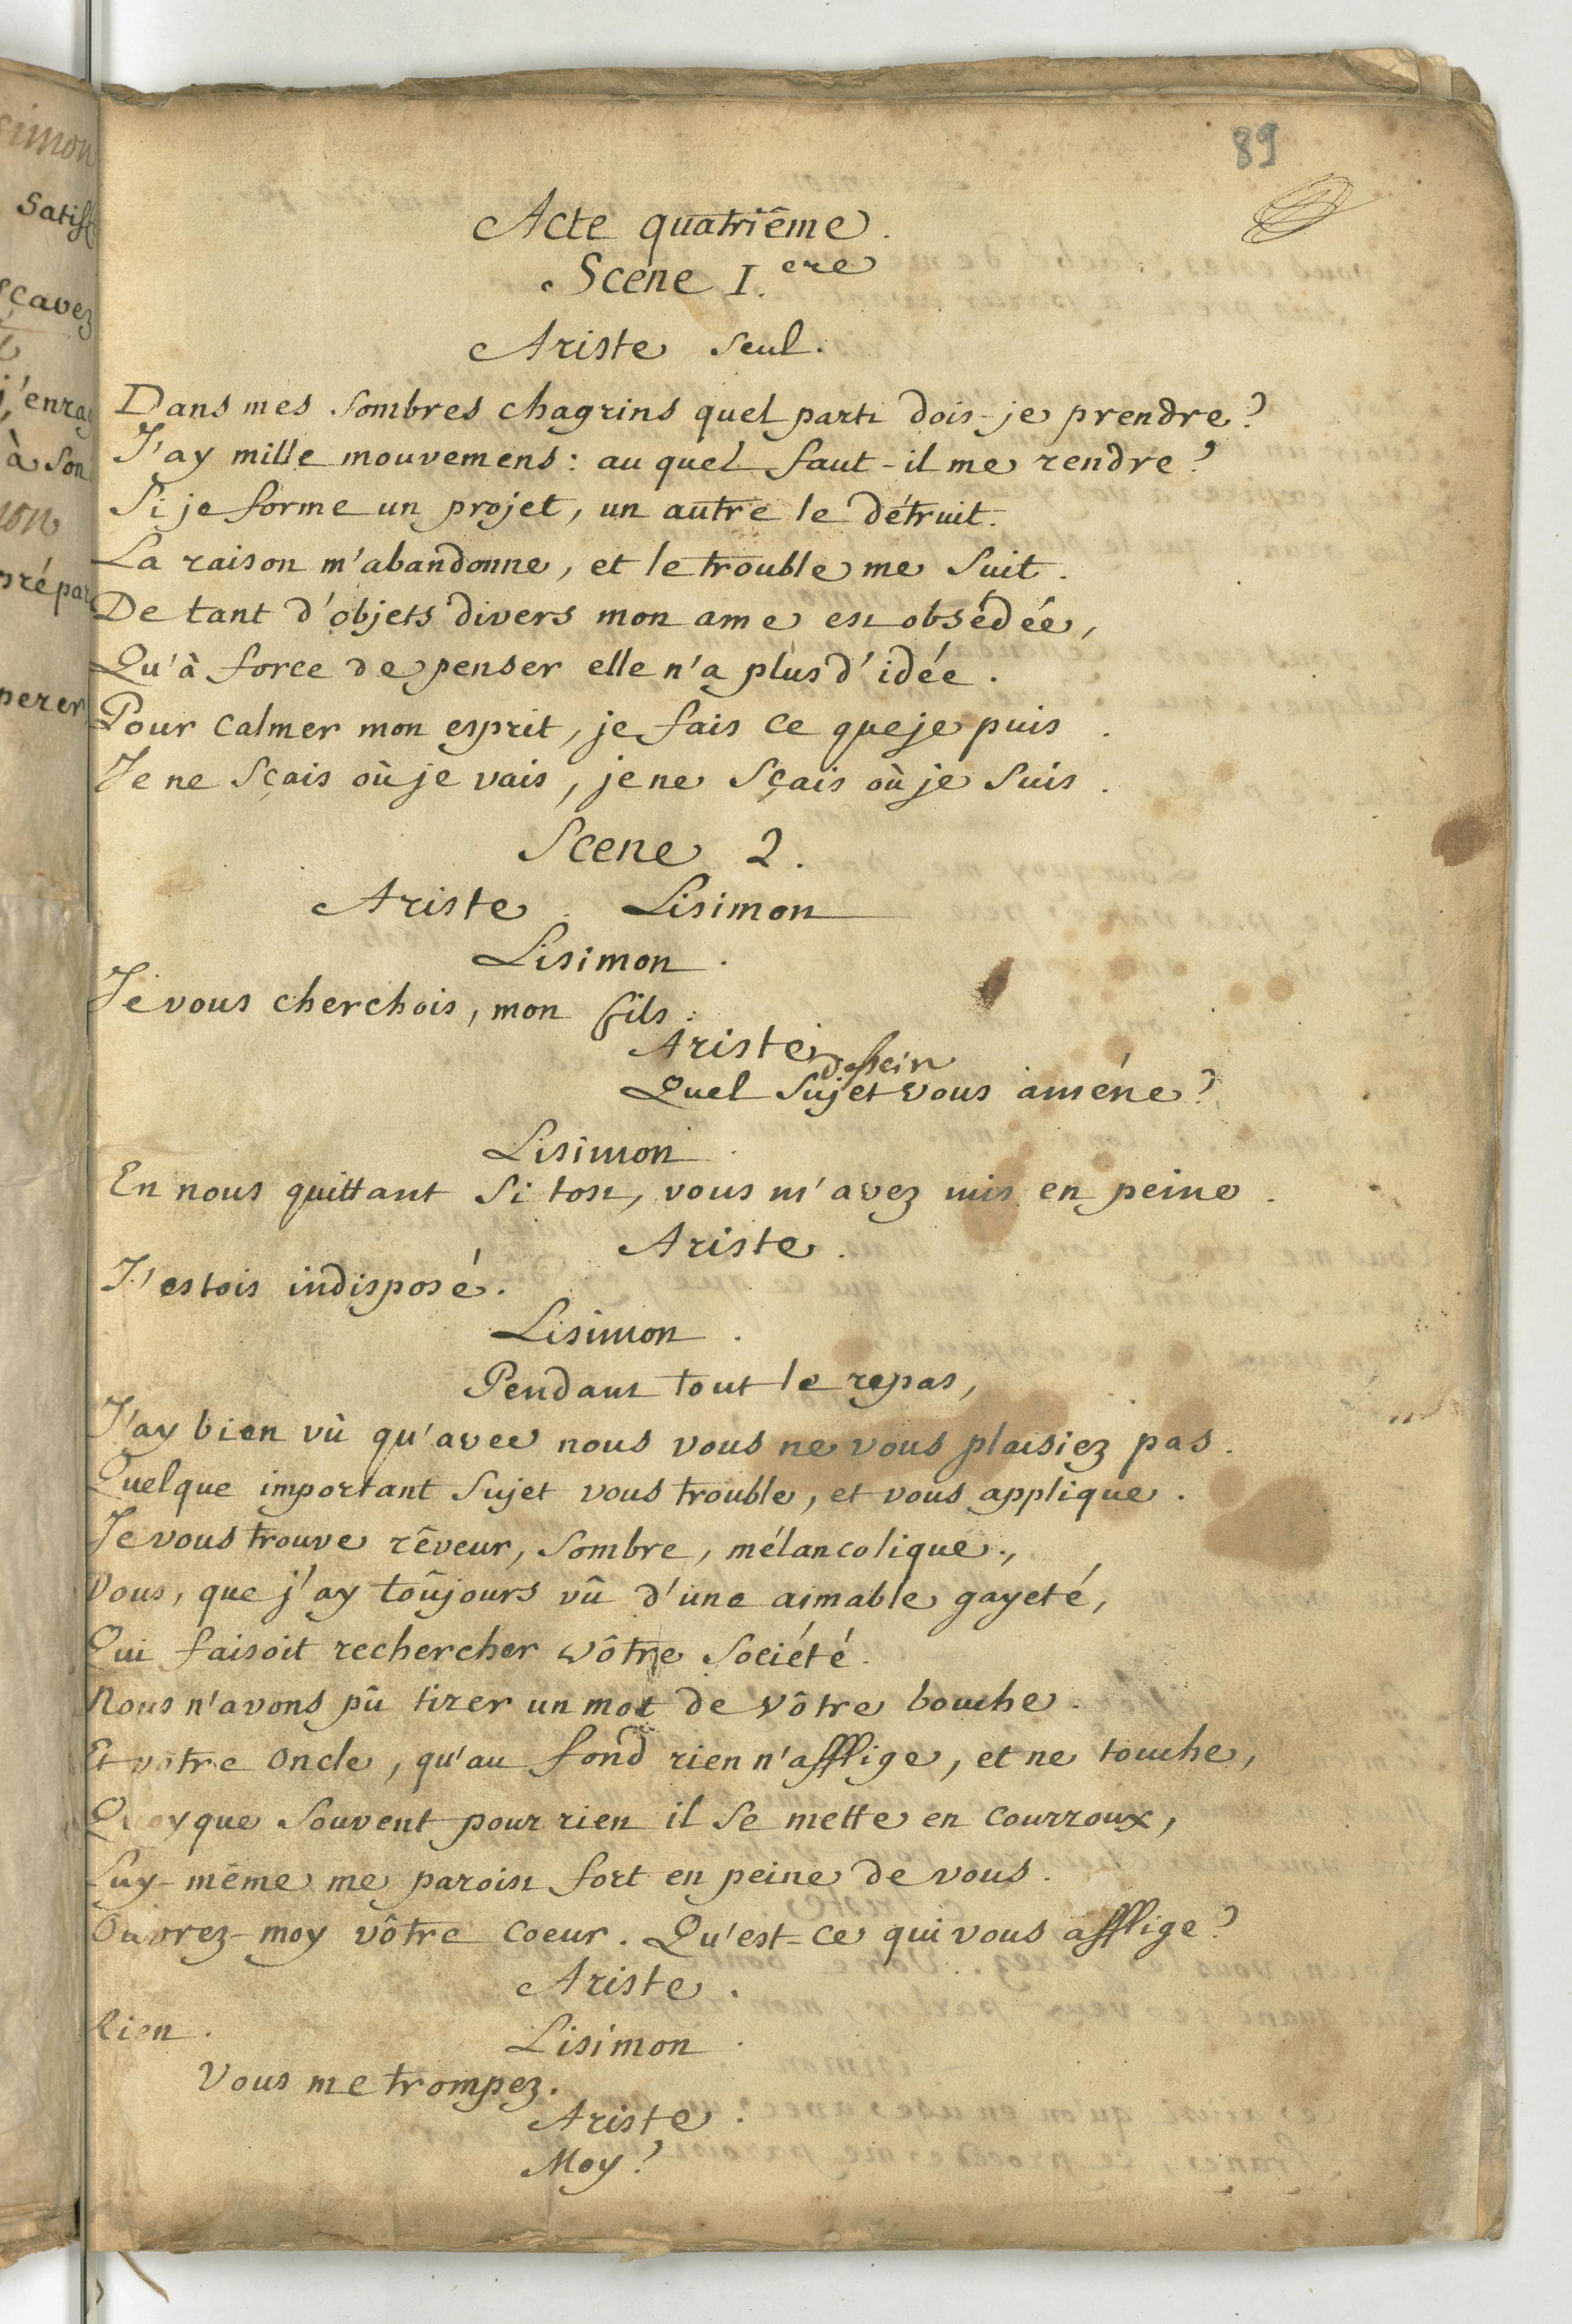 simon
satisf
sçavez
j'enrag
à son
non
prépar
perer
89
Acte quatriême.
Scéne I.ere
Ariste seul.
Dans mes sombres chagrins quel parti dois-je prendre?
J'ay mille mouvemens: au quel faut-il me rendre?
Si je forme un projet, un autre le détruit.
La raison m'abandonne, et le trouble me suit.
De tant d'objets divers mon ame est obsédée,
Qu'à force de penser elle n'a plus d'idée.
Pour calmer mon esprit, je fais ce que je puis.
Je ne sçais où je vais, je ne sçais où je suis.
Scene 2.
Ariste. Lisimon
Lisimon.
Je vous cherchois, mon fils.
Ariste.
dessein
Quel sujet vous améne?
Lisimon.
En nous quittant si tost, vous m'avez mis en peine.
Ariste.
J'estois indisposé.
Lisimon.
Pendant tout le repas,
J'ay bien vû qu'avec nous vous ne vous plaisiez pas.
Quelque important sujet vous trouble, et vous applique.
Je vous trouve rêveur, sombre, mélancolique.,
Vous, que j'ay toûjours vû d'une aimable gayeté,
Qui faisoit rechercher vôtre société.
Nous n'avons pû tirer un mot de vôtre bouche.
Et votre oncle, qu'au fond rien n'afflige, et ne touche,
Quoyque souvent pour rien il se mette en courroux,
Luy-même me paroist fort en peine de vous.
Ouvrez-moy vôtre coeur. Qu'est-ce qui vous afflige?
Ariste.
Rien.
Lisimon.
Vous me trompez.
Ariste.
Moy?